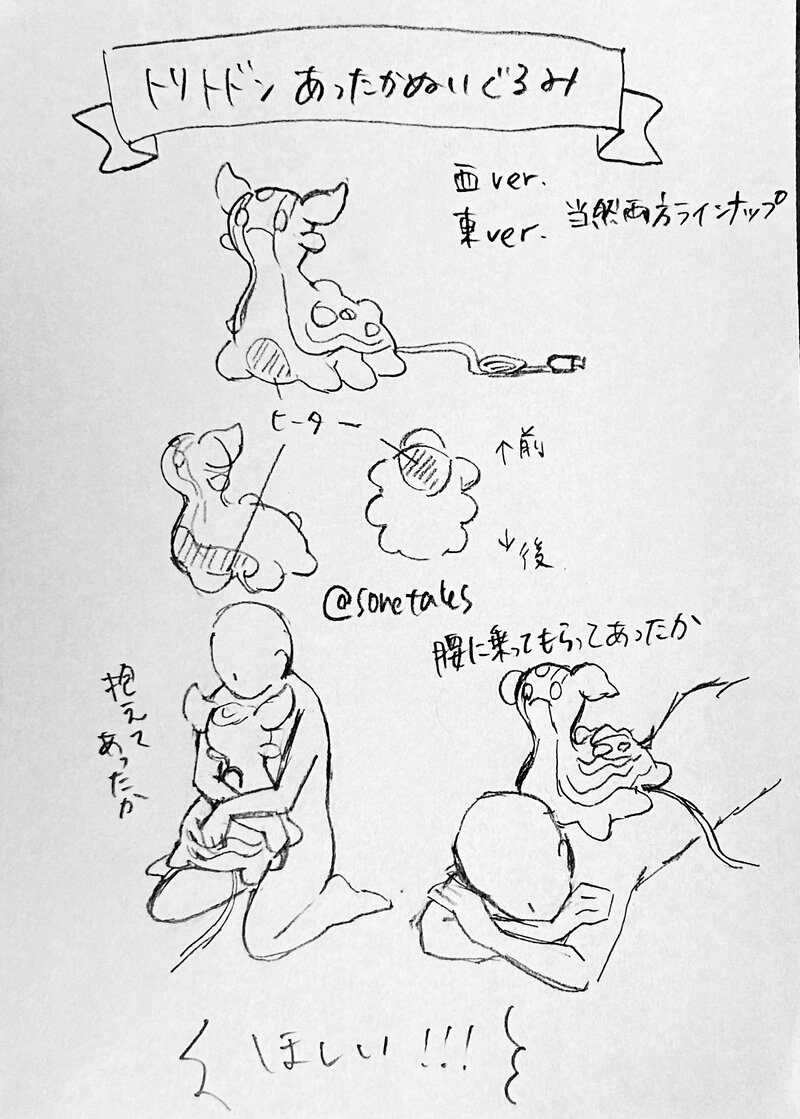 トリトドン あったかぬいぐるみ
西ver.
東ver.
当然両方ラインナップ
ヒーター
↑前
↓後
@sonetales
腰に乗ってもらってあったか
抱えて
あったか
ほしい!!!